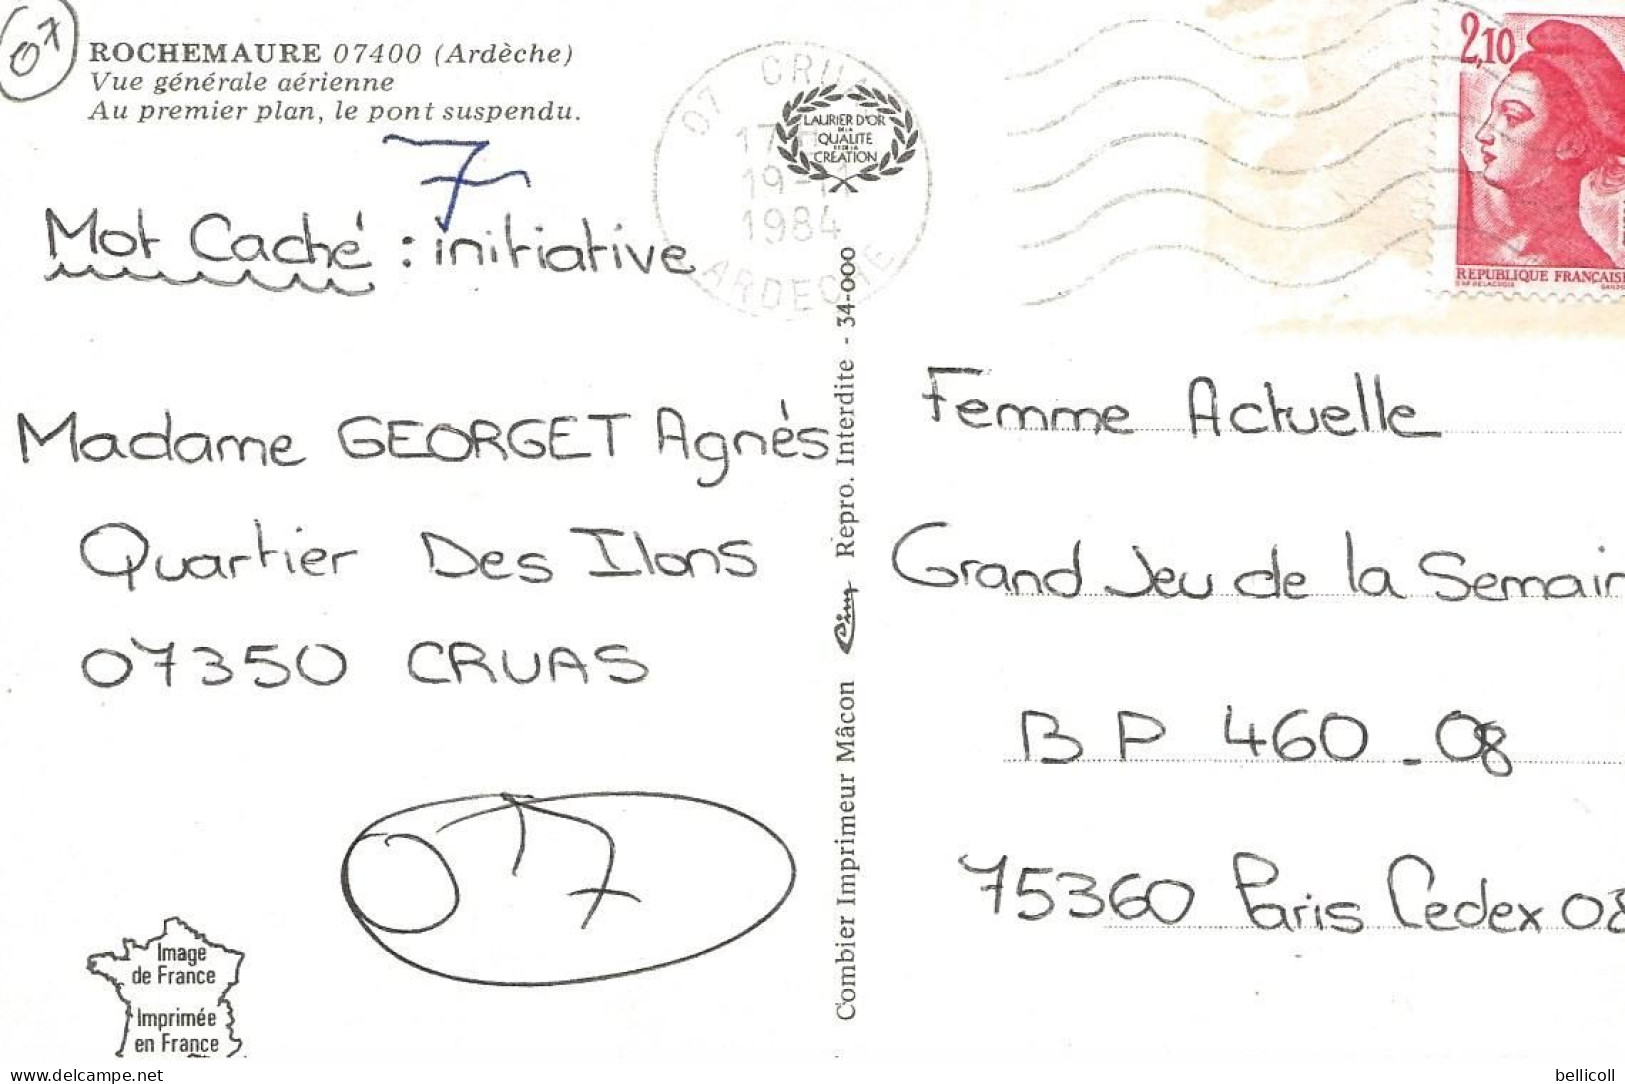 07
ROCHEMAURE 07400 (Ardèche)
Vue générale aérienne
Au premier plan, le pont suspendu.
7
Mot Caché : initiative
Madame GEORGET Agnès
Quartier Des Ilons
07350 CRUAS
07
Image
de France
Imprimée
en France
07 CRUAS
17
19-11
1984
ARDECHE
LAURIER D'OR
DE LA
QUALITE
ET DE LA
CREATION
Combier Imprimeur Mâcon Cim Repro. Interdite - 34-000
2,10
REPUBLIQUE FRANÇAIS
Femme Actuelle
Grand Jeu de la Semain
BP 460-08
75360 Paris Cedex 08
bellicoll
delcampe.net